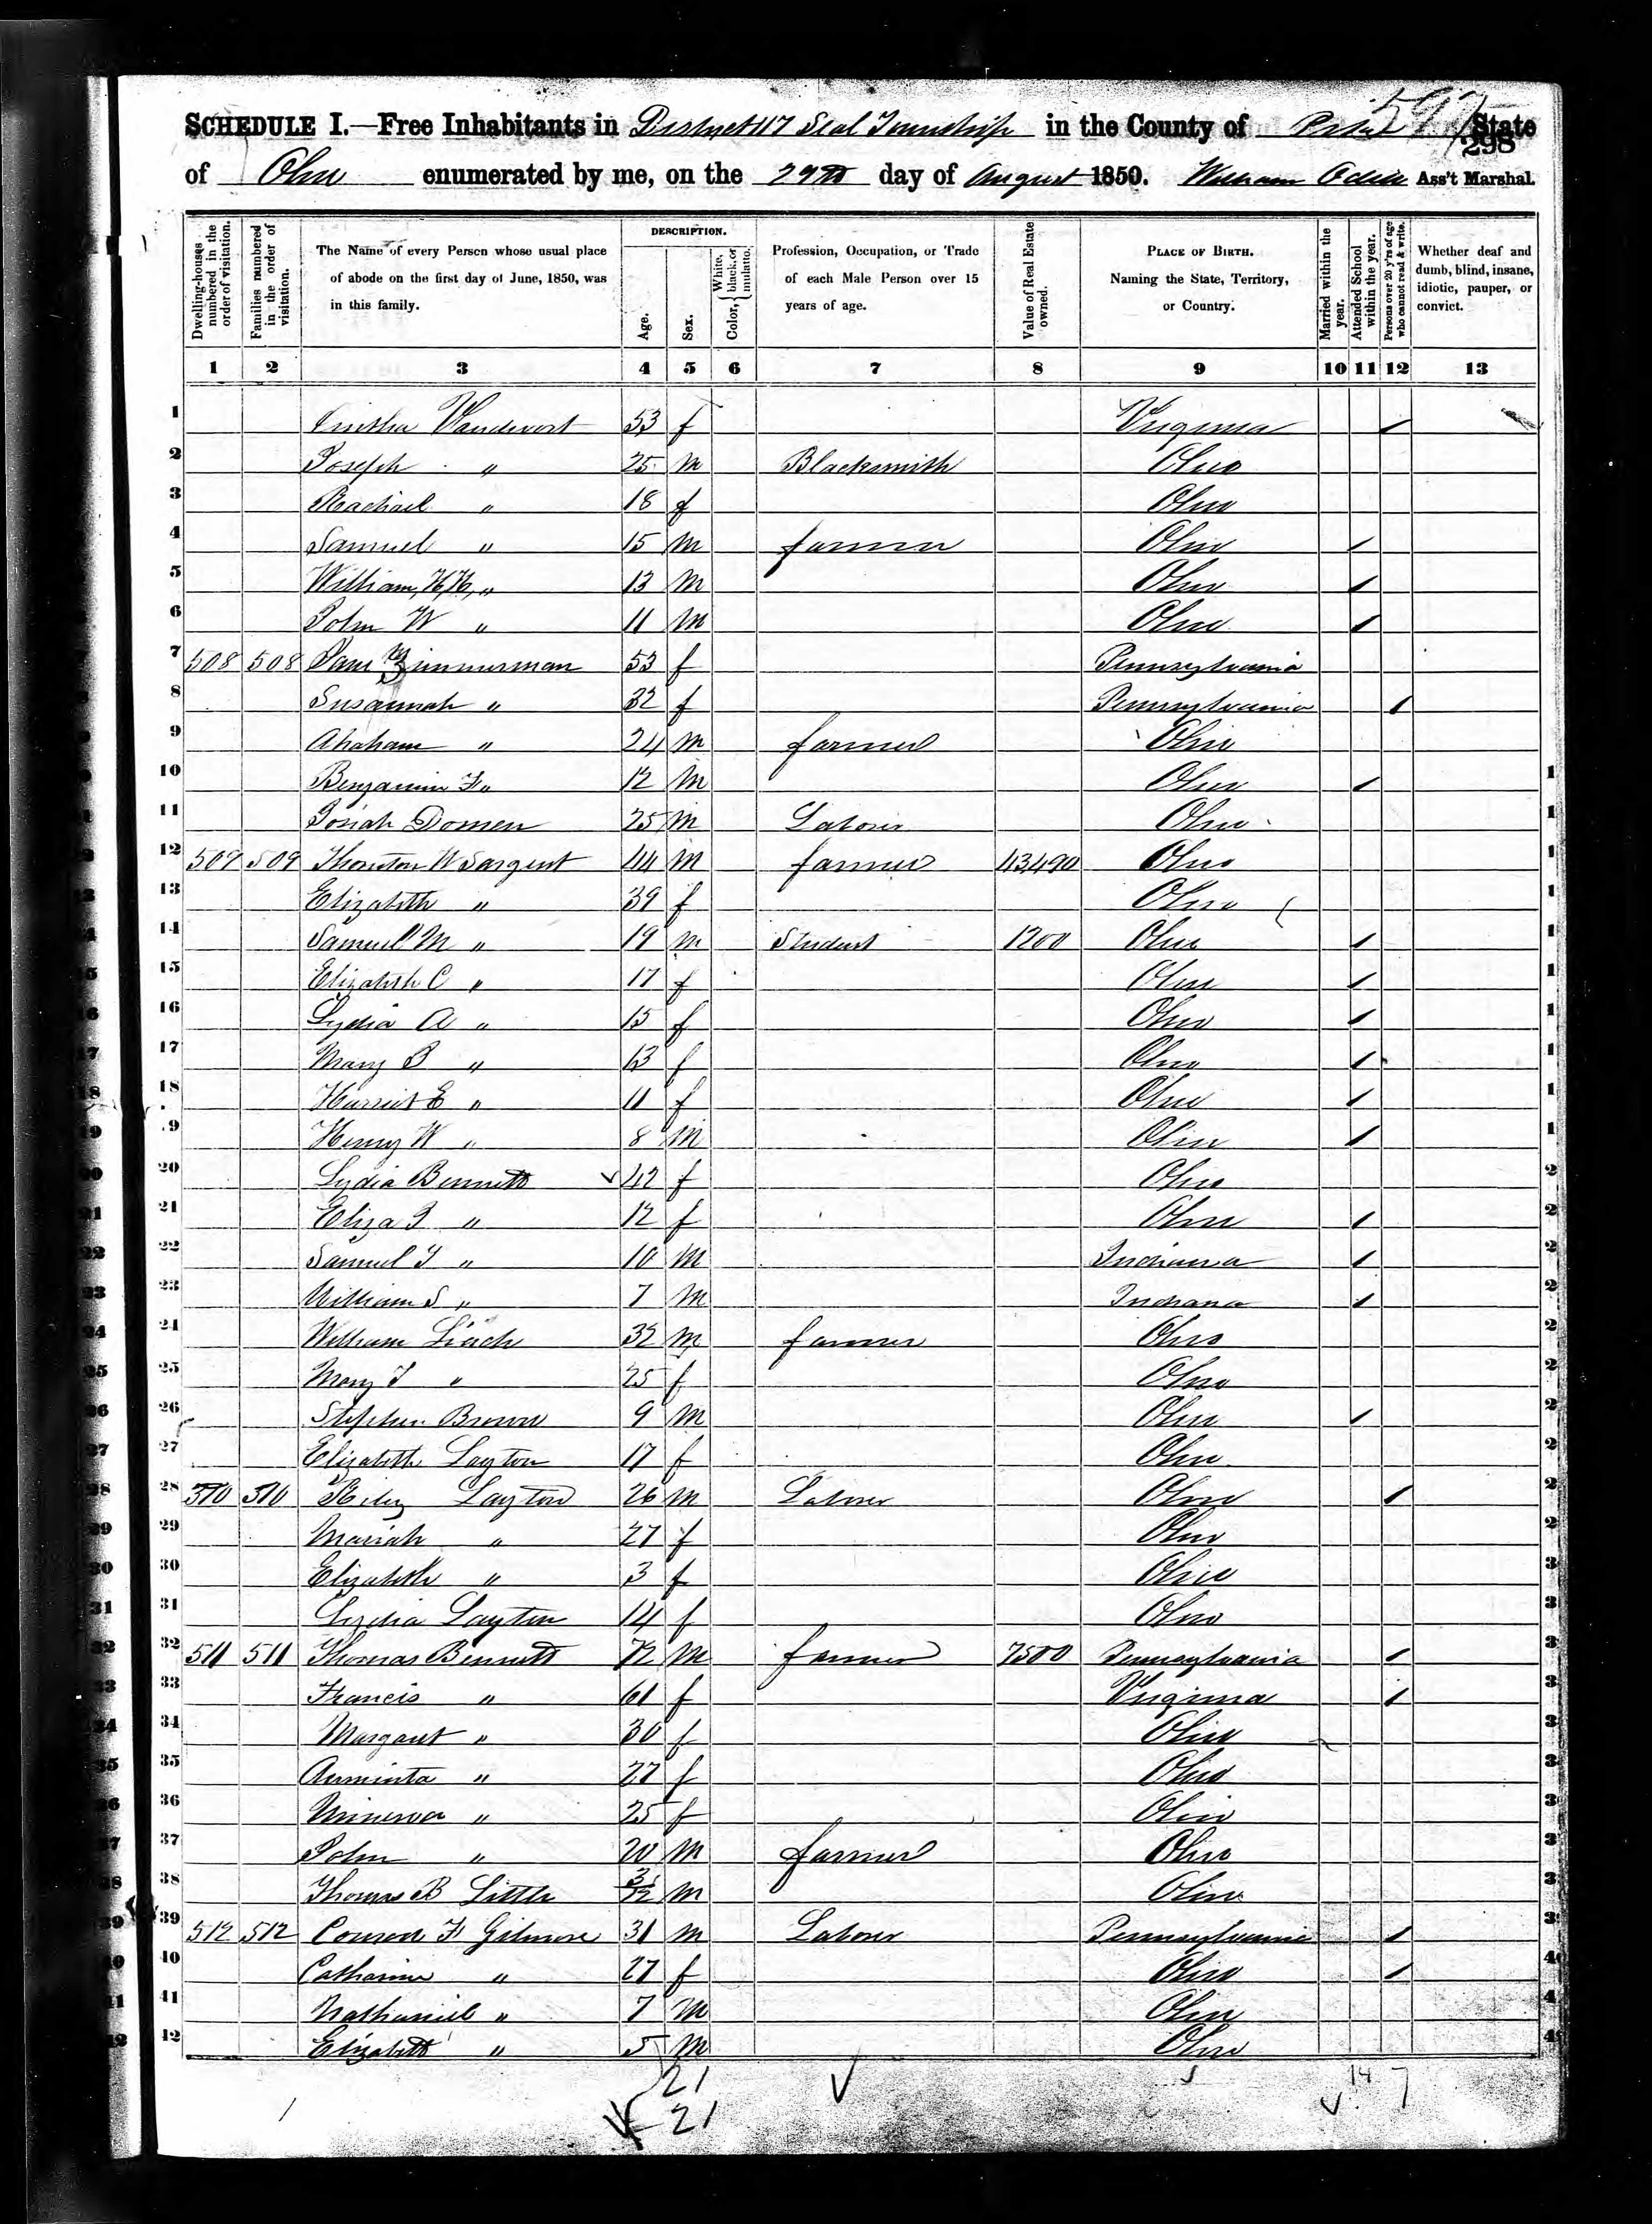 597
SCHEDULE I.—Free Inhabitants in District 117 Seal Township in the County of Pike State
298
of Ohio enumerated by me, on the 29th day of August 1850. William Odell Ass't Marshal.
Dwelling-houses numbered in the order of visitation.
Families numbered in the order of visitation.
The Name of every Person whose usual place of abode on the first day of June, 1850, was in this family.
DESCRIPTION.
Age.
Sex.
Color, { White, black, or mulatto.
Profession, Occupation, or Trade of each Male Person over 15 years of age.
Value of Real Estate owned.
PLACE OF BIRTH. Naming the State, Territory, or Country.
Married within the year.
Attended School within the year.
Persons over 20 y'rs of age who cannot read & write.
Whether deaf and dumb, blind, insane, idiotic, pauper, or convict.
1 2 3 4 5 6 7 8 9 10 11 12 13
1 Vandevort 53 f Virginia /
2 Joseph " 25 m Blacksmith Ohio
3 Rachael " 18 f Ohio
4 Samuel " 15 m farmer Ohio /
5 William, H,H, " 13 m Ohio /
6 John W " 11 m Ohio /
7 508 508 Zimmerman 53 f Pennsylvania
8 Susannah " 32 f Pennsylvania /
9 Abraham " 24 m farmer Ohio
10 Benjamin F " 12 m Ohio /
11 Josiah Domen 25 m Laborer Ohio
12 509 509 Thornton W Sargent 44 m farmer 43,490 Ohio
13 Elizabeth " 39 f Ohio
14 Samuel M " 19 m Student 1200 Ohio /
15 Elizabeth C " 17 f Ohio /
16 Lydia A " 15 f Ohio /
17 Mary B " 13 f Ohio /
18 Harriet E " 11 f Ohio /
19 Henry W " 8 m Ohio /
20 Lydia Bennett 42 f Ohio
21 Eliza J " 12 f Ohio /
22 Samuel T " 10 m Indiana /
23 William S " 7 m Indiana /
24 William 32 m farmer Ohio
25 Mary J " 25 f Ohio
26 Stephen Brown 9 m Ohio /
27 Elizabeth Layton 17 f Ohio
28 510 510 Riley Layton 26 m Laborer Ohio /
29 Mariah " 27 f Ohio
30 Elizabeth " 3 f Ohio
31 Lydia Layton 14 f Ohio
32 511 511 Thomas Bennett 72 m farmer 7500 Pennsylvania /
33 Francis " 61 f Virginia /
34 Margaret " 30 f Ohio
35 Arminta " 27 f Ohio
36 Minerva " 25 f Ohio
37 John " 20 m farmer Ohio
38 Thomas B Little 3/12 m Ohio
39 512 512 Conrod F Gilmore 31 m Laborer Pennsylvania /
40 Catharine " 27 f Ohio /
41 Nathaniel " 7 m Ohio
42 Elizabeth " 5 m Ohio
21 14 7
21